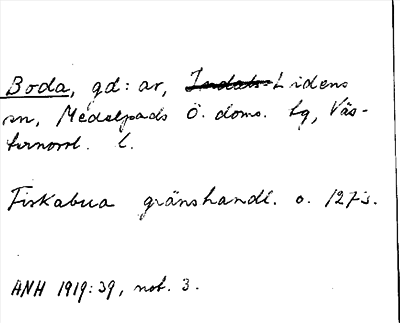 Boda, gd: ar, Indals-Lidens
sn, Medelpads Ö. doms. tg, Väs-
ternorrl. l.
Fiskabua gränshandl. o. 1273.
ANH 1919:39, not. 3.